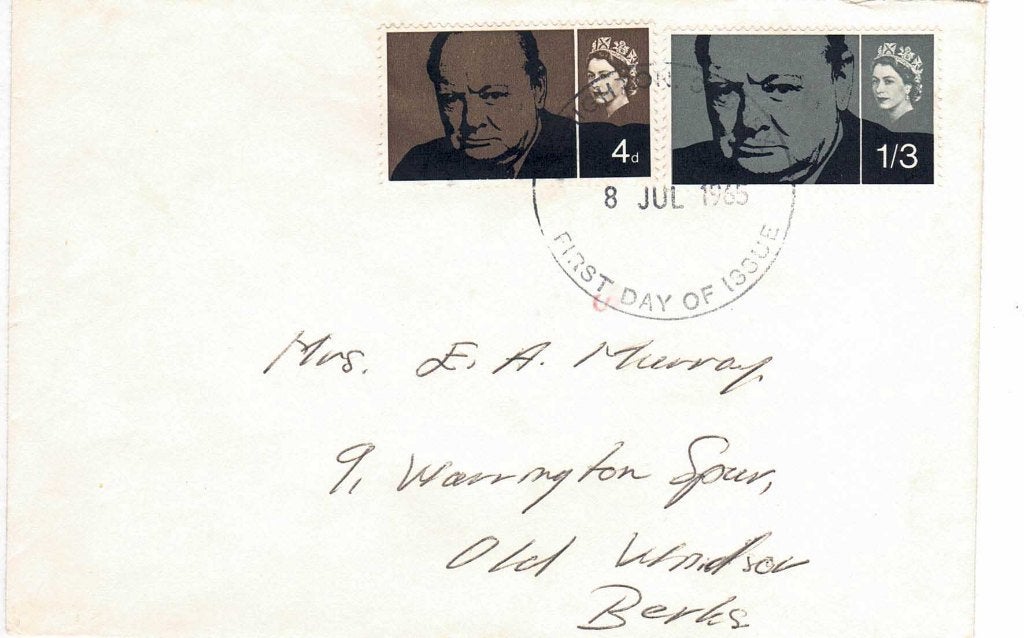 4d
1/3
8 JUL 1965
FIRST DAY OF ISSUE
Mrs. E. A. Murray,
9, Warrington Spur,
Old Windsor
Berks